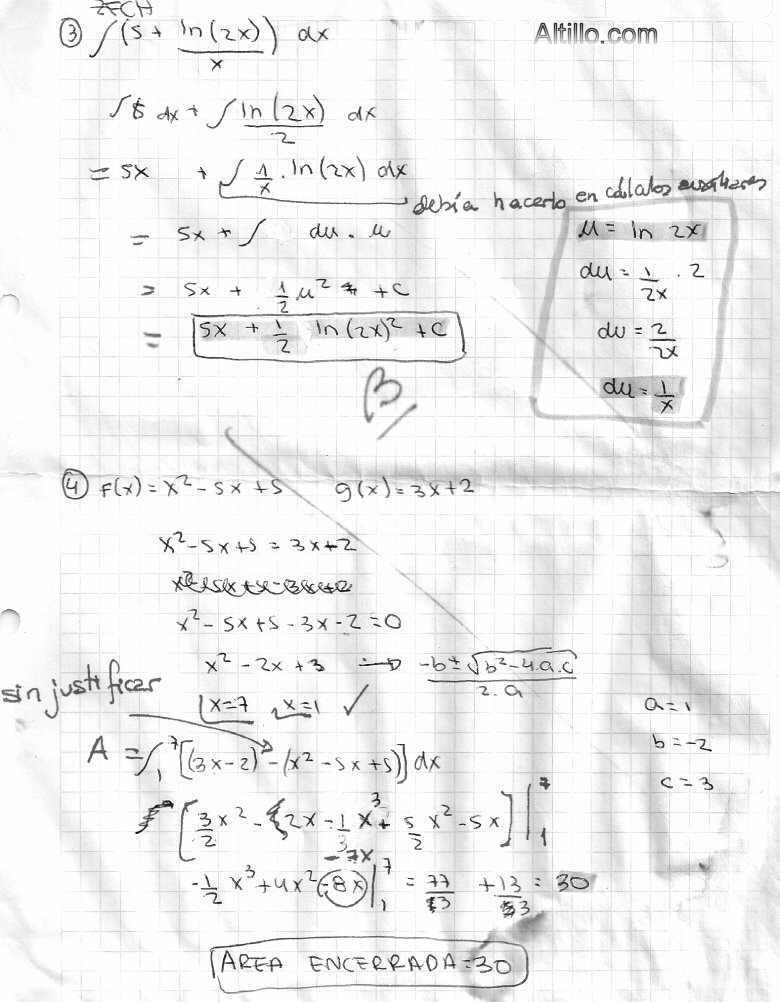 ③ ∫(5 + ln(2x)/x) dx
Altillo.com
∫5 dx + ∫ ln(2x)/2 dx
= 5x + ∫ 1/x . ln(2x) dx
debía hacerlo en cálculos auxiliares
= 5x + ∫ du . u
= 5x + 1/2 u² + c
= 5x + 1/2 ln(2x)² + c
u = ln 2x
du = 1/2x . 2
du = 2/2x
du = 1/x
B
④ f(x) = x² - 5x + 5 g(x) = 3x + 2
x² - 5x + 5 = 3x + 2
x² - 5x + 5 - 3x - 2 = 0
x² - 2x + 3 → -b ± √b² - 4.a.c / 2.a
sin justificar
x = 7 x = 1 ✓
a = 1
b = -2
c = 3
A = ∫₁⁷ [(3x - 2) - (x² - 5x + 5)] dx
[3/2 x² - 2x - 1/3 x³ + 5/2 x² - 5x] |₁⁷
- 7x
-1/2 x³ + 4x² - 8x |₁⁷ = 77/3 + 13/3 = 30
AREA ENCERRADA = 30